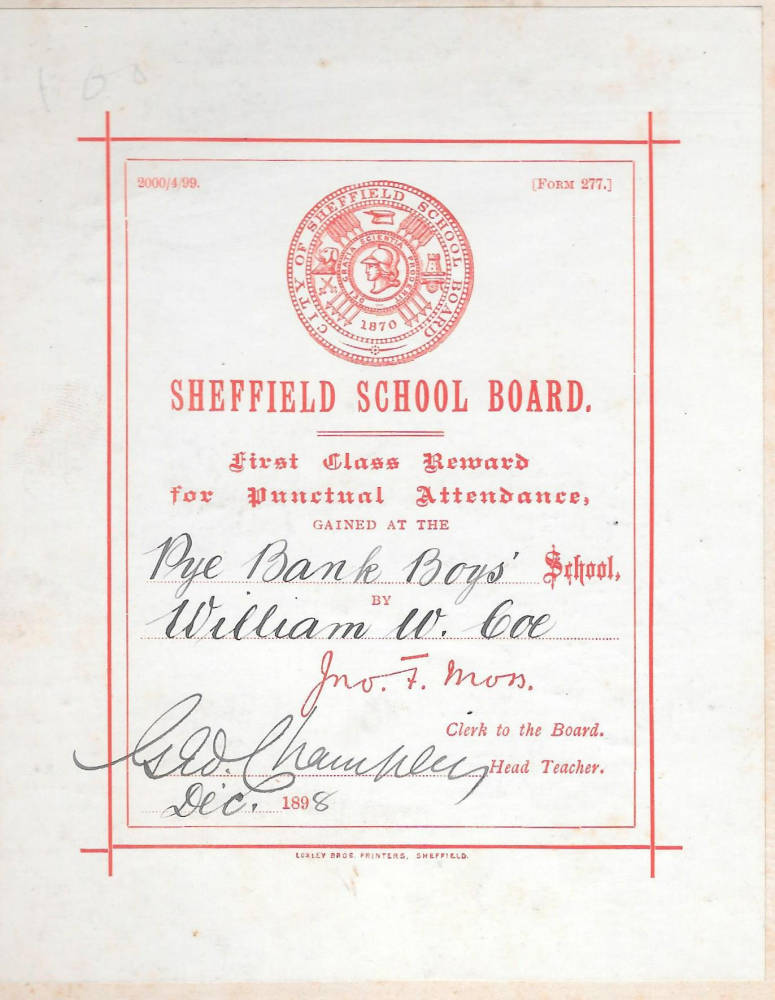 2000/4/99.
[FORM 277.]
CITY OF SHEFFIELD SCHOOL BOARD
DEI GRATIA SCIENTIA PROD
1870
SHEFFIELD SCHOOL BOARD.
First Class Reward
for Punctual Attendance,
GAINED AT THE
Pye Bank Boys' School,
BY
William W. Coe
Jno. F. Moss.
Clerk to the Board.
Geo. Champley Head Teacher.
Dec. 1898
LOXLEY BROS. PRINTERS, SHEFFIELD.